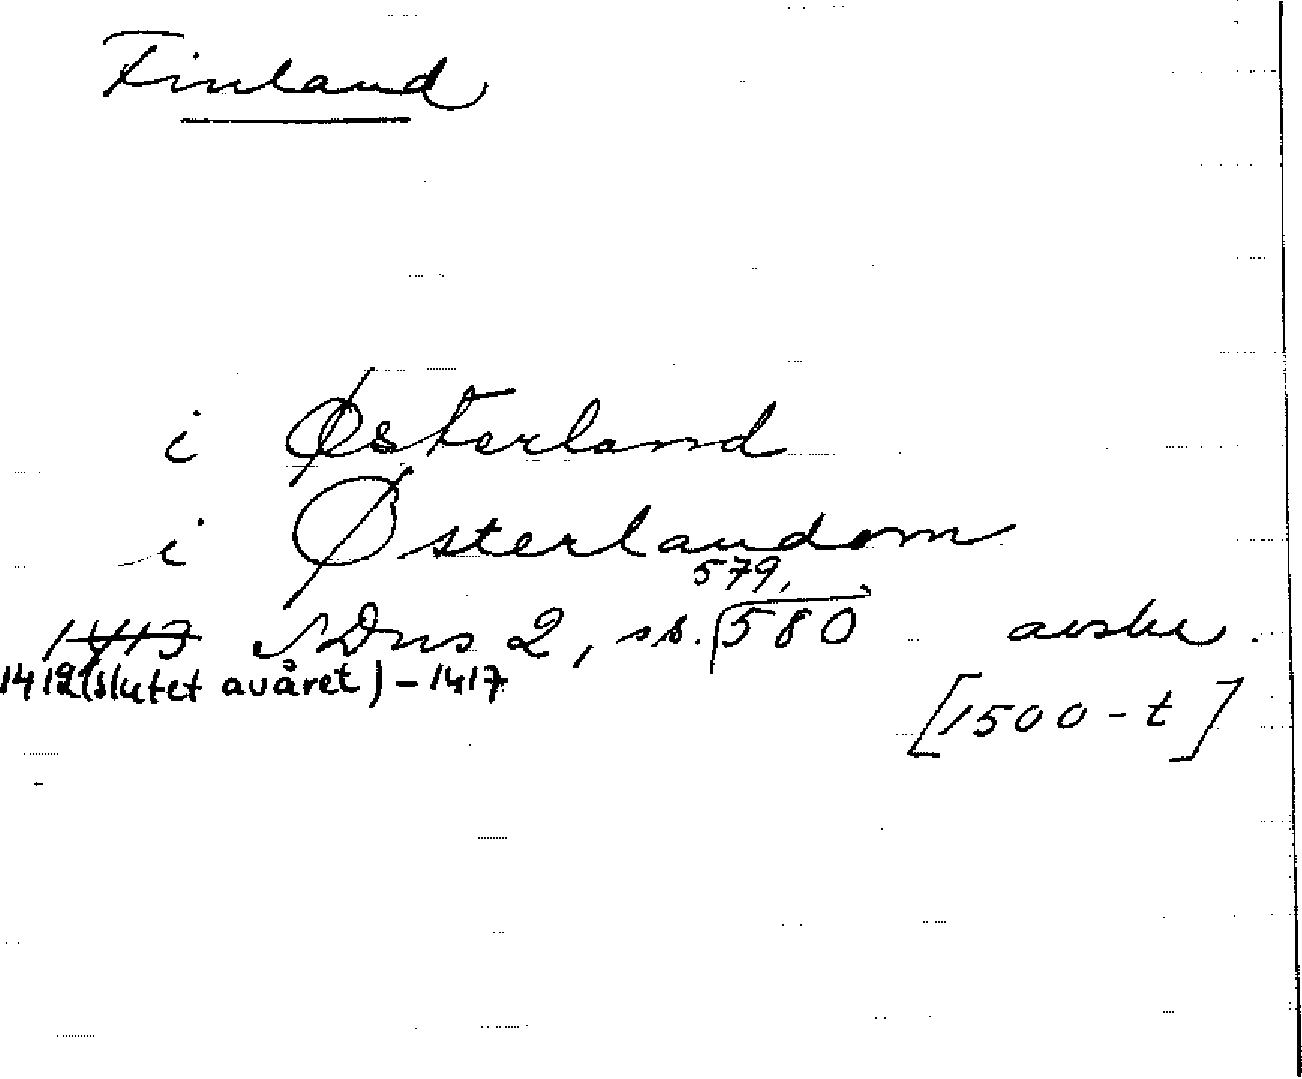 Finland
i Østerland
i Østerlandom
579,
1413 SDns 2, ss. 580 avskr.
1412 (slutet av året) - 1417
[1500-t]